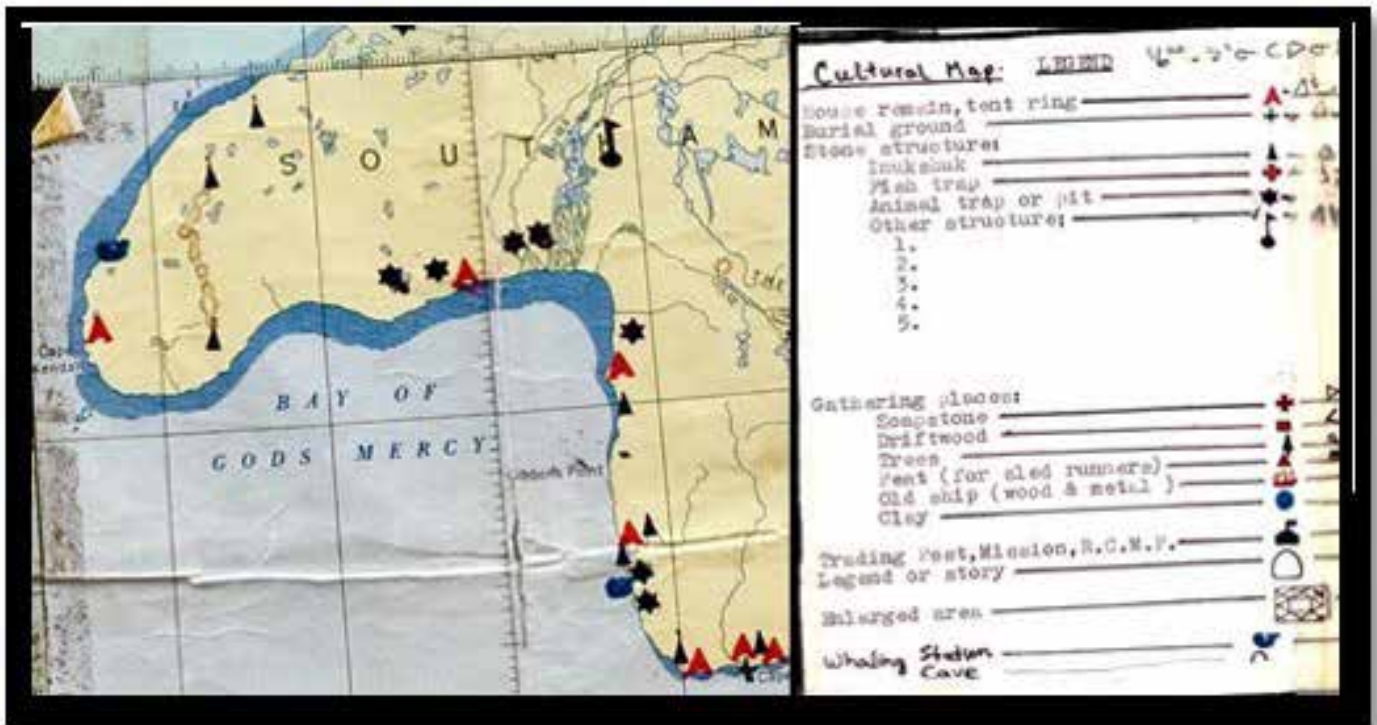 S O U T H A M
Cape
Kendall
BAY OF
GODS MERCY
Gibbons Point
Cultural Map: LEGEND
House remain, tent ring
Burial ground
Stone structure:
Inukshuk
Fish trap
Animal trap or pit
Other structure:
1.
2.
3.
4.
5.
Gathering places:
Soapstone
Driftwood
Trees
Peat (for sled runners)
Old ship (wood & metal )
Clay
Trading Post, Mission, R.C.M.P.
Legend or story
Enlarged area
Whaling Station
Cave